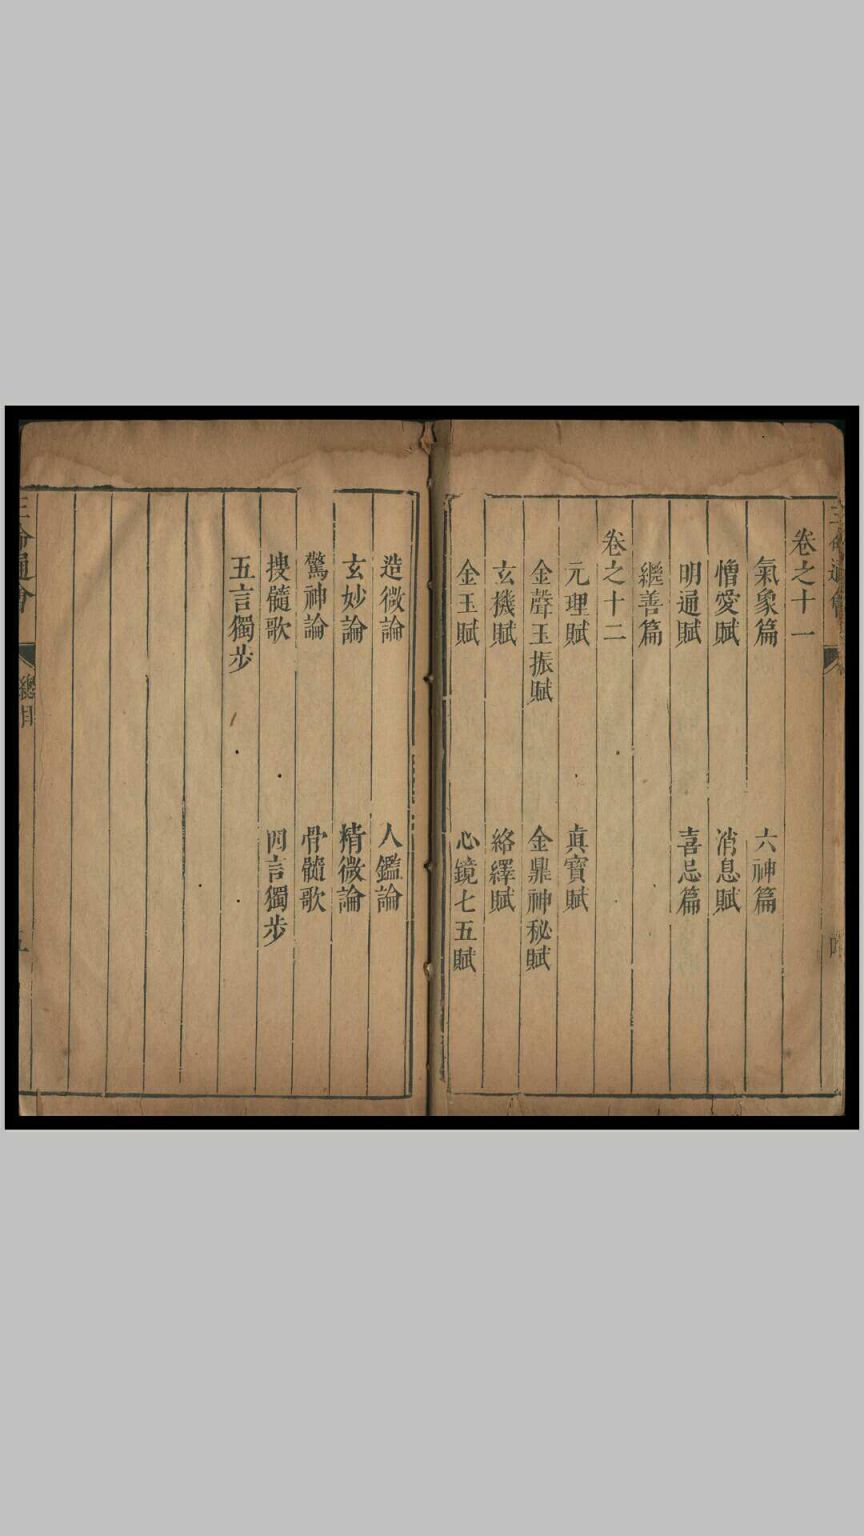 卷之十一
氣象篇 六神篇
憎愛賦 消息賦
明通賦 喜忌篇
繼善篇
卷之十二
元理賦 真寶賦
金聲玉振賦 金鼎神秘賦
玄機賦 絡繹賦
金玉賦 心鏡七五賦
造微論 人鑑論
玄妙論 精微論
驚神論 骨髓歌
搜髓歌 四言獨步
五言獨步
三命通會 總目